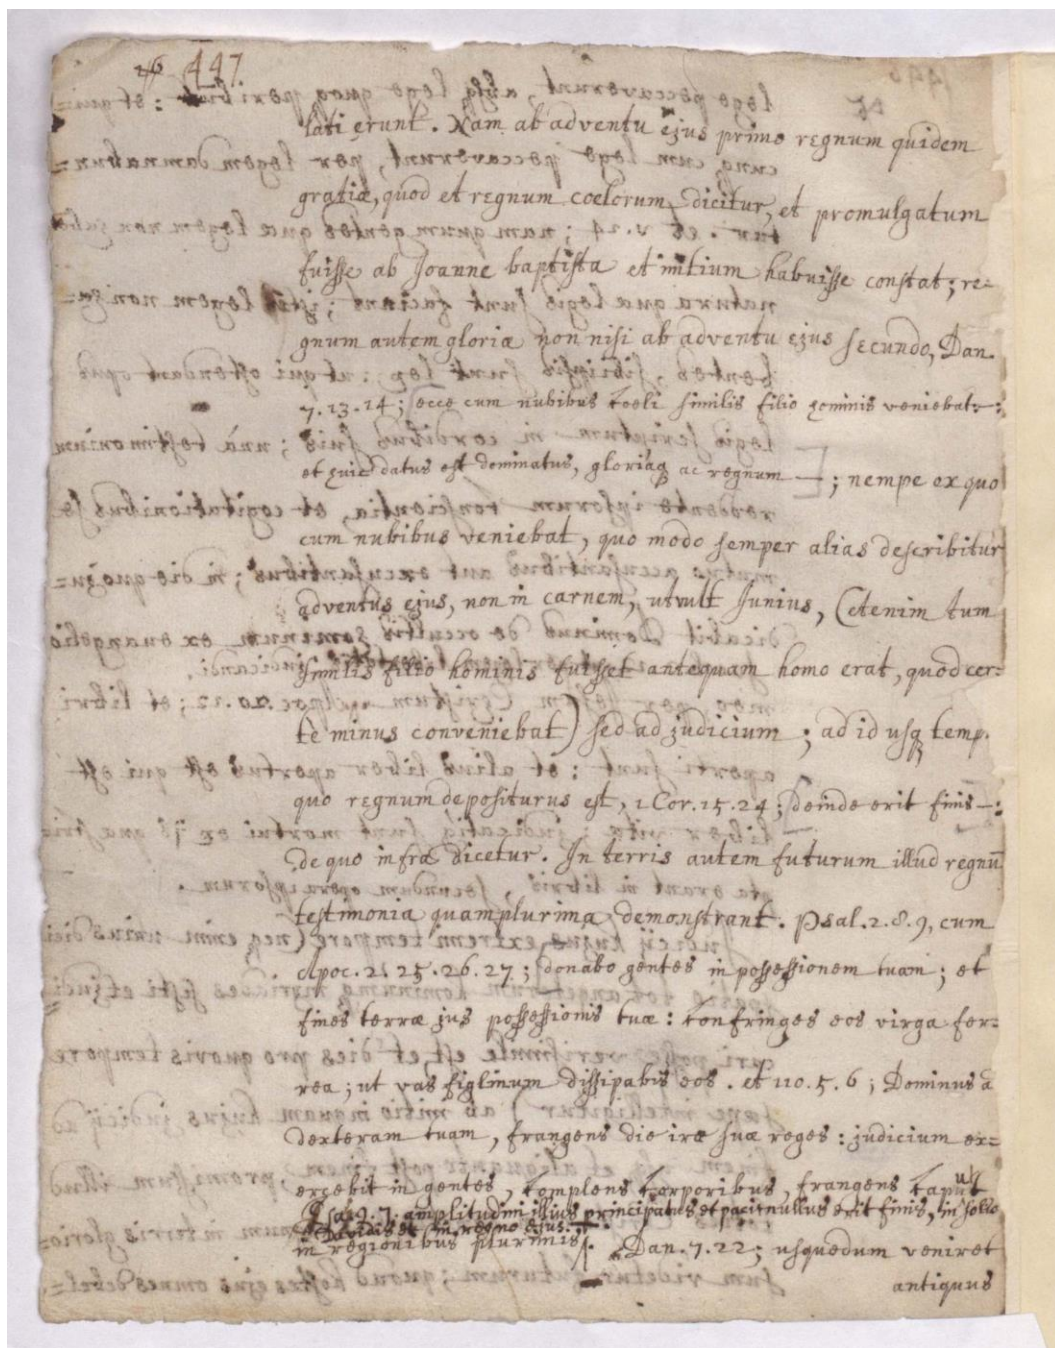 447.
lati erunt. Nam ab adventu ejus primo regnum quidem
gratiæ, quod et regnum coelorum dicitur, et promulgatum
fuisse ab Joanne baptista et initium habuisse constat; re=
gnum autem gloriæ non nisi ab adventu ejus secundo, Dan.
7.13.14; ecce cum nubibus coeli similis filio hominis veniebat—:
et huic datus est dominatus, gloriaq ac regnum —; nempe ex quo
cum nubibus veniebat, quo modo semper alias describitur
adventus ejus, non in carnem, ut vult Junius, (etenim tum
similis filio hominis fuisset antequam homo erat, quod cer=
te minus conveniebat) sed ad judicium; ad id usq temp.
quo regnum depositurus est, 1 Cor. 15.24; deinde erit finis—:
de quo infra dicetur. In terris autem futurum illud regnū
testimonia quamplurima demonstrant. Psal. 2.8.9, cum
Apoc. 2.25.26.27; donabo gentes in possessionem tuam; et
fines terræ jus possessionis tuæ: confringes eos virga fer=
rea; ut vas figlinum dissipabis eos. et 110.5.6; Dominus a
dexteram tuam, frangens die iræ suæ reges: judicium ex=
ercebit in gentes, complens corporibus, frangens caput
Isa. 9.7. amplitudini illius principatus et pacis nullus erit finis, in solio
Davidis et in regno ejus.
in regionibus plurimis. Dan. 7.22; usquedum veniret
antiquus